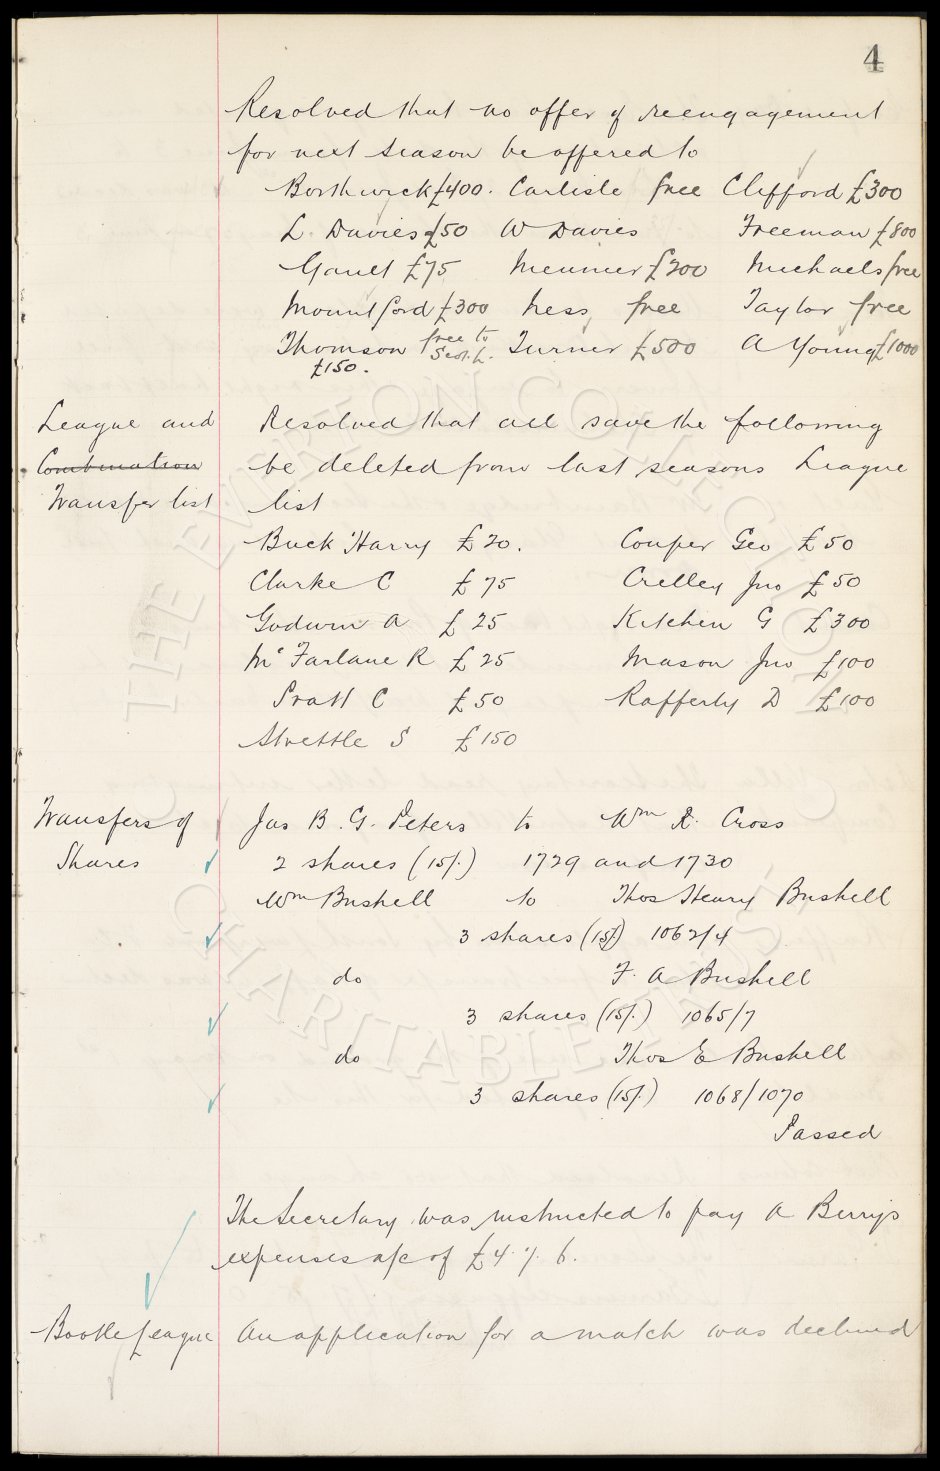 4
Resolved that no offer of reengagement
for next season be offered to
Borthwick £400. Carlisle free Clifford £300
L. Davies £50 W Davies Freeman £800
Gault £75 Meunier £200 Michaels free
Mountford £300 Ness free Taylor free
Thomson free to Scot. L. Turner £500 A Young £1000
£150.
League and Resolved that all save the following
Combination be deleted from last seasons League
Transfer list list
Buck Harry £20. Couper Geo £50
Clarke C £75 Crelley Jno £50
Godwin A £25 Kitchen G £300
Mc Farlane R £25 Mason Jno £100
Pratt C £50 Rafferty D £100
Strettle S £150
Transfers of Jas B. G. Peters to Wm R. Cross
Shares 2 shares (15/.) 1729 and 1730
Wm Bushell to Thos Henry Bushell
3 shares (15/.) 1062/4
do F. A Bushell
3 shares (15/.) 1065/7
do Thos E Bushell
3 shares (15/.) 1068/1070
Passed
The Secretary was instructed to pay A Berry's
expenses a/c of £4. /. 6.
Bootle League An application for a match was declined
THE EVERTON COLLECTION
CHARITABLE TRUST